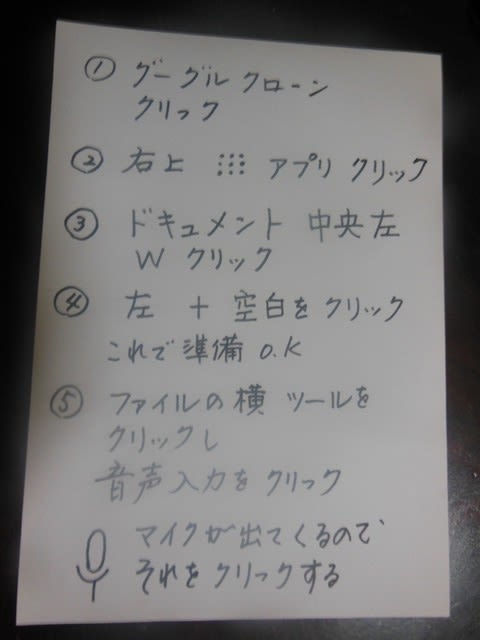 ① グーグル クローン
クリック
② 右上 ⋮⋮⋮ アプリ クリック
③ ドキュメント 中央左
W クリック
④ 左 + 空白を クリック
これで 準備 O.K
⑤ ファイルの横 ツールを
クリックし
音声入力を クリック
マイクが出てくるので
それを クリックする